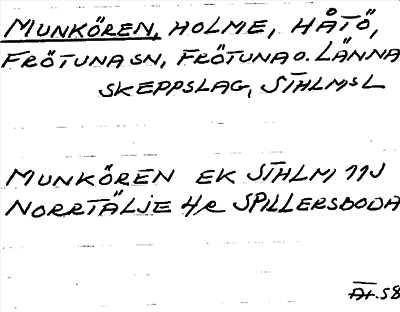 MUNKÖREN, HOLME, HÅTÖ,
FRÖTUNA SN, FRÖTUNA O. LÄNNA
SKEPPSLAG, STHLMS L
MUNKÖREN EK STHLM 11J
NORRTÄLJE 4 SPILLERSBODA
58